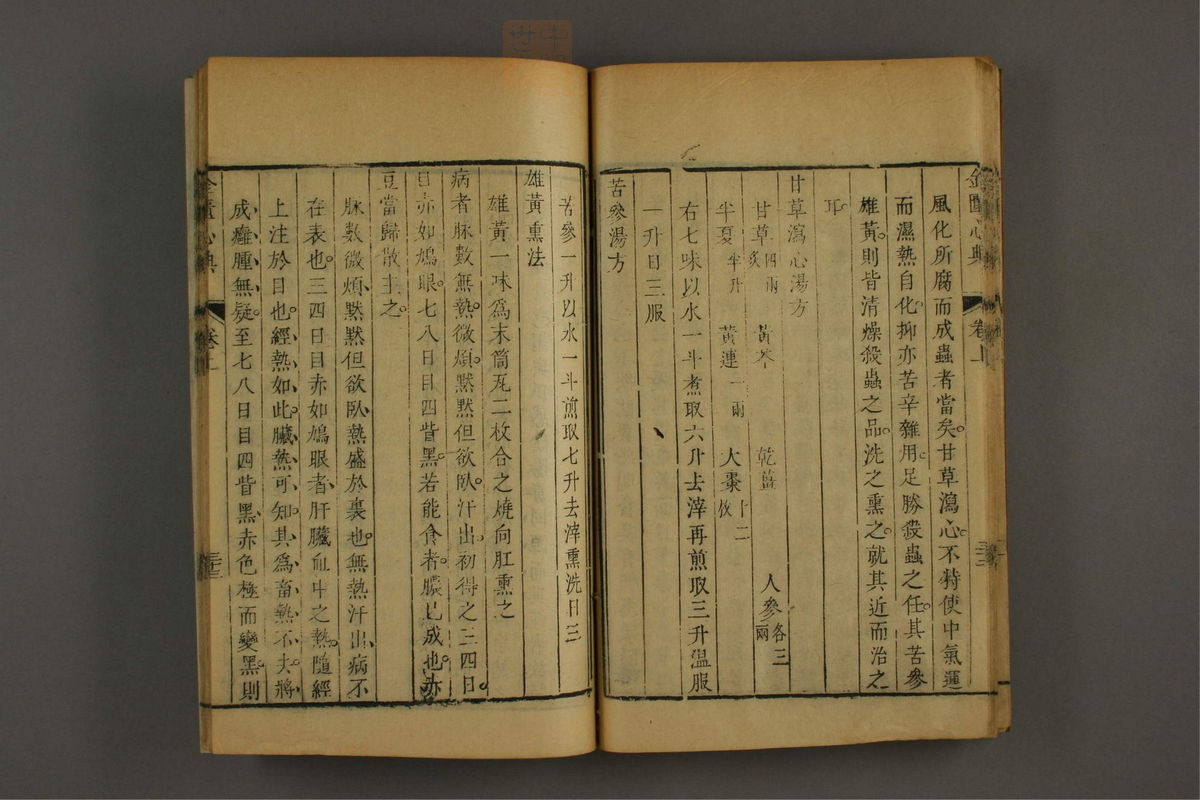 金匱心典 卷上
風化所腐而成蟲者當矣甘草瀉心不特使中氣運
而濕熱自化抑亦苦辛雜用足勝殺蟲之任其苦參
雄黃則皆清燥殺蟲之品洗之熏之就其近而治之
耳
甘草瀉心湯方
甘草四兩炙 黃芩 乾薑 人參各三兩
半夏半升 黃連一兩 大棗十二枚
右七味以水一斗煮取六升去滓再煎取三升溫服
一升日三服
苦參湯方
苦參一升以水一斗煎取七升去滓熏洗日三
雄黃熏法
雄黃一味為末筒瓦二枚合之燒向肛熏之
病者脉數無熱微煩默默但欲臥汗出初得之三四日
目赤如鳩眼七八日目四眥黑若能食者膿已成也赤
豆當歸散主之
脉數微煩默默但欲臥熱盛於裏也無熱汗出病不
在表也三四日目赤如鳩眼者肝臟血中之熱隨經
上注於目也經熱如此臟熱可知其為畜熱不去將
成癰腫無疑至七八日目四眥黑赤色極而變黑則
金匱心典 卷上 三十三